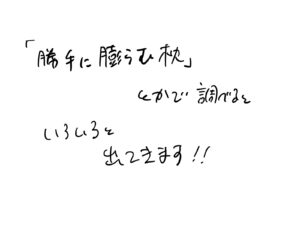 「勝手に膨らむ枕」
とかで調べると
いろいろと
出てきます!!